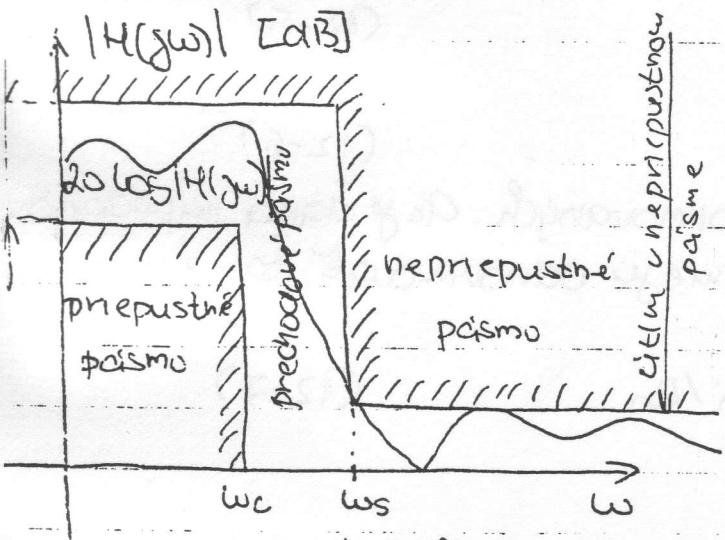 |H(jω)| [dB]
20 log |H(jω)|
priepustné
pásmo
prechodné pásmo
nepriepustné
pásmo
útlm v nepriepustnom
pásme
ωc
ωs
ω